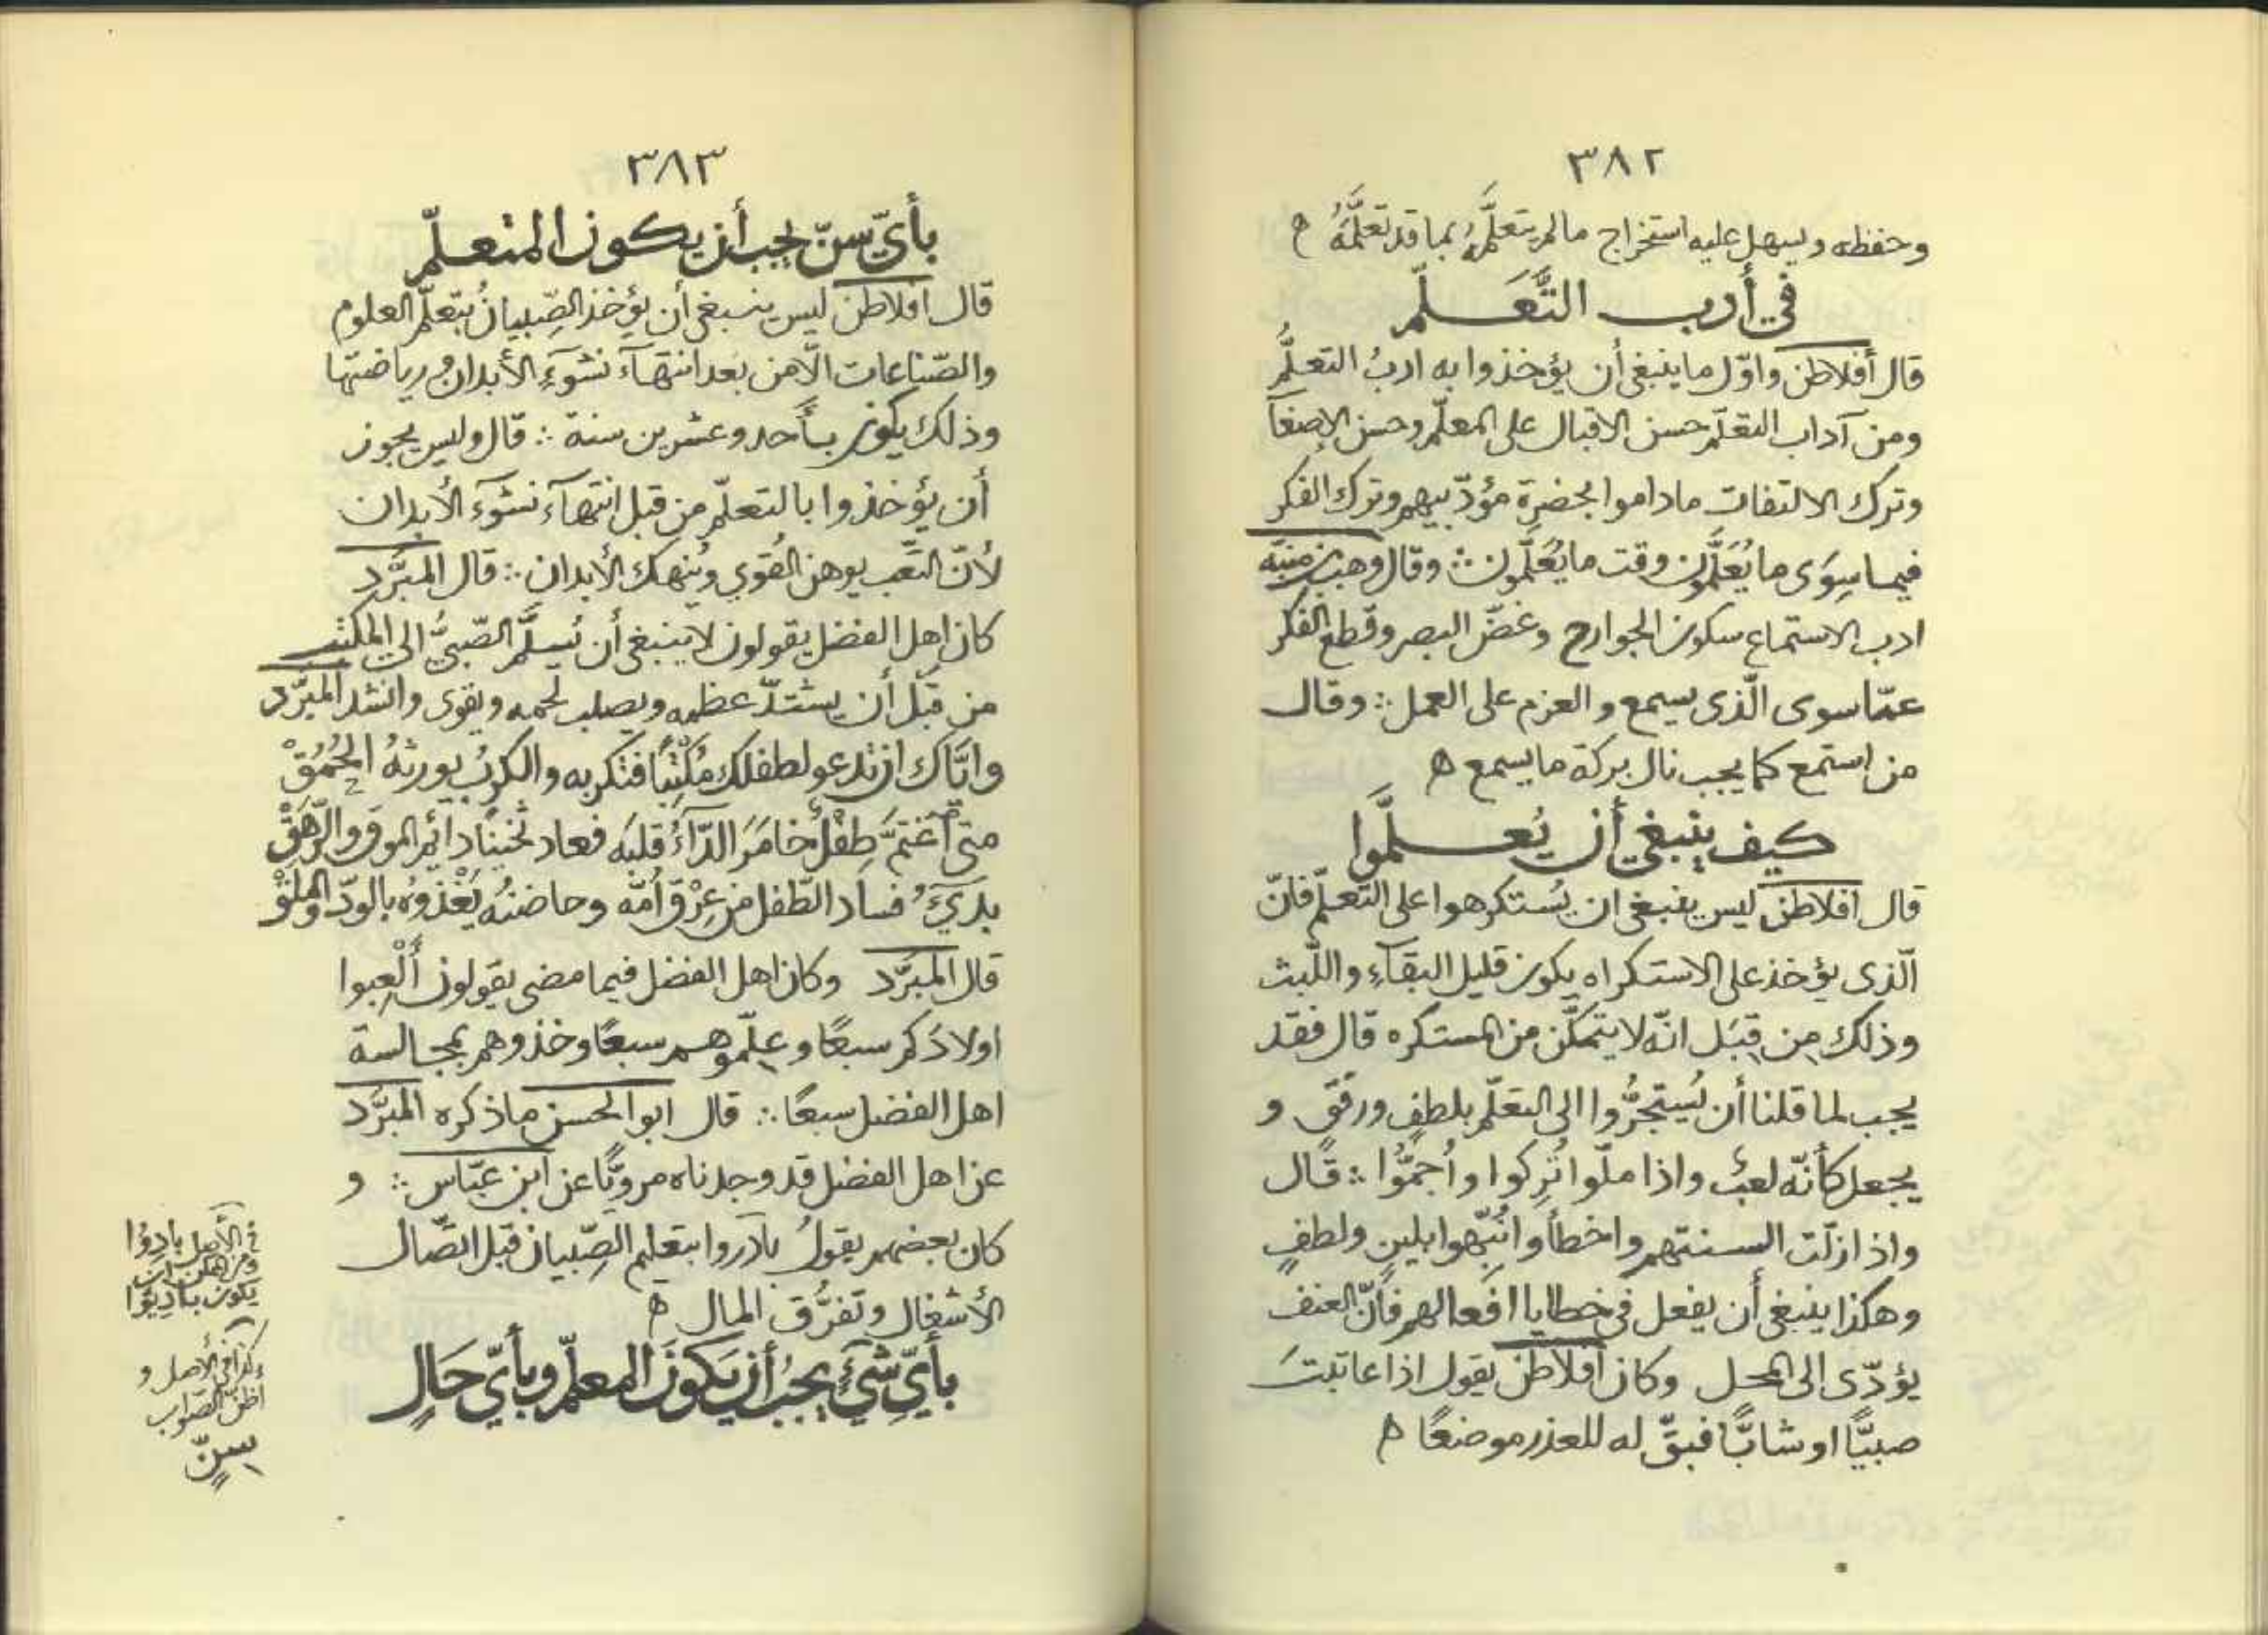 ٣٨٢
وحفظه ويسهل عليه استخراج مالم يتعلَّمهُ بما قد تعَلَّمَهُ ه
في أدب التَّعَلّم
قال أفلاطن واوّل ما ينبغي أن يؤخذوا به ادبُ التعلُّم
ومن آداب التعلّم حسن الاقبال على المعلّم وحسن الإصغآ
وترك الالتفات ماداموا بحضرة مؤدّبيهم وترك الفكر
فيما سِوَى ما يُعَلَّمون وقت ما يُعَلَّمون ∴ وقال وهب بن منبّه
ادب الاستماع سكون الجوارح وغضّ البصر وقطع الفكر
عمّا سوى الّذى يسمع والعزم على العمل ∴ وقال
من استمع كما يجب نال بركة ما يسمع ه
كيف ينبغي أن يُعلَّموا
قال افلاطن ليس ينبغي ان يُستكرهوا على التّعلّم فانّ
الّذى يؤخذ على الاستكراه يكون قليل البقآءِ واللّبث
وذلك مِن قِبَل انّه لا يتمكّن من المستكره قال فقد
يجب لما قلنا أن يُستجرُّوا الى التعَلّم بلطفٍ ورفقٍ و
يجعل كأنّه لعبٌ واذا ملّوا تُرِكوا وأُجمُّوا ∴ قال
واذا زلّت السنتهم واخطأوا نُبّهوا بلينٍ ولطفٍ
وهكذا ينبغي أن يفعل في خطايا افعالهم فانّ العنف
يؤدّى الى المحل وكان افلاطن يقول اذا عاتبتَ
صبيًّا او شابًّا فبقّ له للعذر موضعًا ه
٣٨٣
بأيّ سنّ يجب أن يكون المتعلّم
قال افلاطن ليس ينبغي أن يؤخذ الصِّبيانُ بتعلّم العلوم
والصّناعات الّا من بعد انتهآء نشوَءِ الأبدان ورياضتها
وذلك يكون بأحد وعشرين سنة ∴ قال وليس يجوز
أن يؤخذوا بالتعلّم من قبل انتهآء نشوَء الأبدان
لأنّ التّعب يوهن القوي ويُنهك الأبدان ∴ قال المبرَّد
كان اهل الفضل يقولون لا ينبغي أن يُسلَّم الصّبيُّ الى المكتب
من قبل أن يشتدّ عظمه ويصلب لحمه ويقوى وانشد المبرّد
وايّاك ان تدعو لطفلك مُكْتِبًا فتكربه والكربُ يورثهُ الحُمُقْ
متى آغتمَّ طِفْلٌ خامَرَ الدّآءُ قلبَه فعاد ثخينًا دائم الموق والرَّهَقْ
بدىَءُ فساد الطّفل من عِرْق اُمّه وحاضنهُ يَغْذوُه بالودّ والملَقْ
قال المبرَّد وكان اهل الفضل فيما مضى يقولون أَلْعِبوا
اولادَكم سبعًا وعلِّموهم سبعًا وخذوهم بمجالسة
اهل الفضل سبعًا ∴ قال ابو الحسن ماذكره المبرَّد
عن اهل الفضل قد وجدناه مرويًّا عن ابن عبّاس ∴ و
كان بعضهم يقولُ بادروا بتعليم الصِّبيان قبل اتّصال
الأشغال وتفرُّق المال ه
بأيّ شيءٍ يجبُ أن يَكونَ المعلّم وبأيّ حَالٍ
في الأصل بادِوُا
يكون بادِيوُا
كذا في الأصل و
اظنّ الصّواب
سِنّ